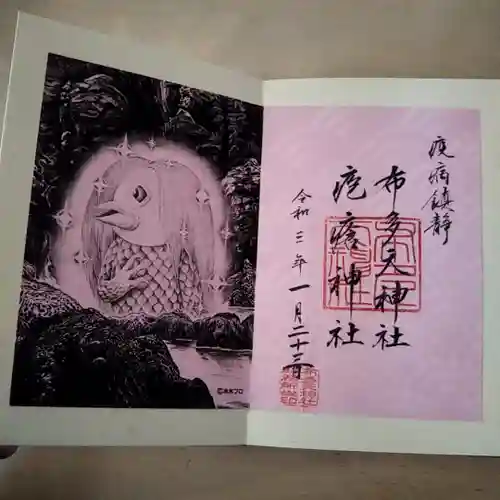 疫病鎮静
布多天神社
疱瘡神社
令和三年一月二十三日
©水木プロ